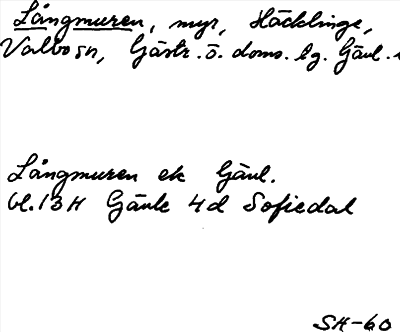 Långmuren, myr, Häcklinge,
Valbo sn, Gästr. ö. doms. lg. Gävl.
Långmuren ek Gävl.
bl. 13H Gävle 4d Sofiedal
SK-60